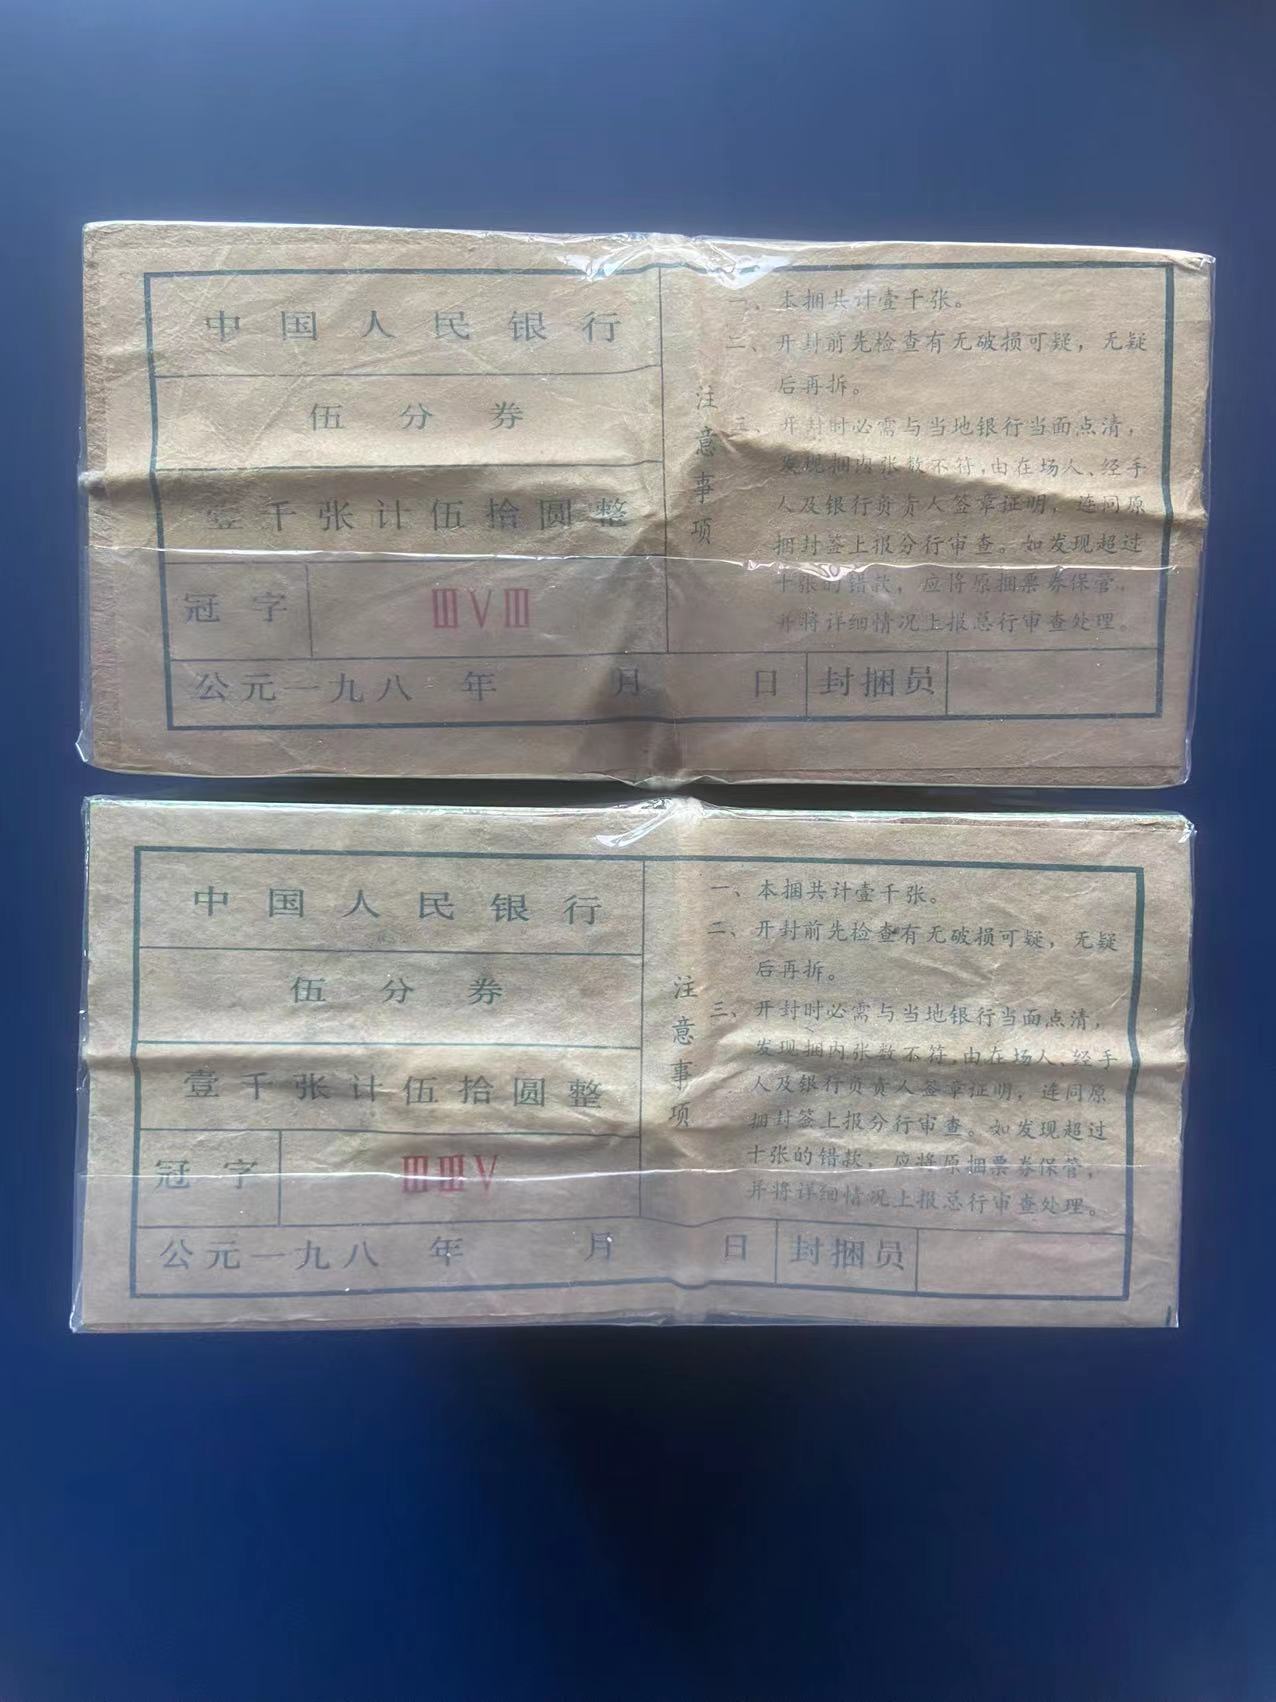 中国人民银行
伍分券
壹千张计伍拾圆整
冠字 ⅢⅤⅢ
公元一九八 年 月 日 封捆员
注意事项
一、本捆共计壹千张。
二、开封前先检查有无破损可疑，无疑
后再拆。
三、开封时必需与当地银行当面点清，
发现捆内张数不符，由在场人、经手
人及银行负责人签章证明，连同原
捆封签上报分行审查。如发现超过
十张的错款，应将原捆票券保管，
并将详细情况上报总行审查处理。
中国人民银行
伍分券
壹千张计伍拾圆整
冠字 ⅢⅢⅤ
公元一九八 年 月 日 封捆员
注意事项
一、本捆共计壹千张。
二、开封前先检查有无破损可疑，无疑
后再拆。
三、开封时必需与当地银行当面点清，
发现捆内张数不符，由在场人、经手
人及银行负责人签章证明，连同原
捆封签上报分行审查。如发现超过
十张的错款，应将原捆票券保管，
并将详细情况上报总行审查处理。